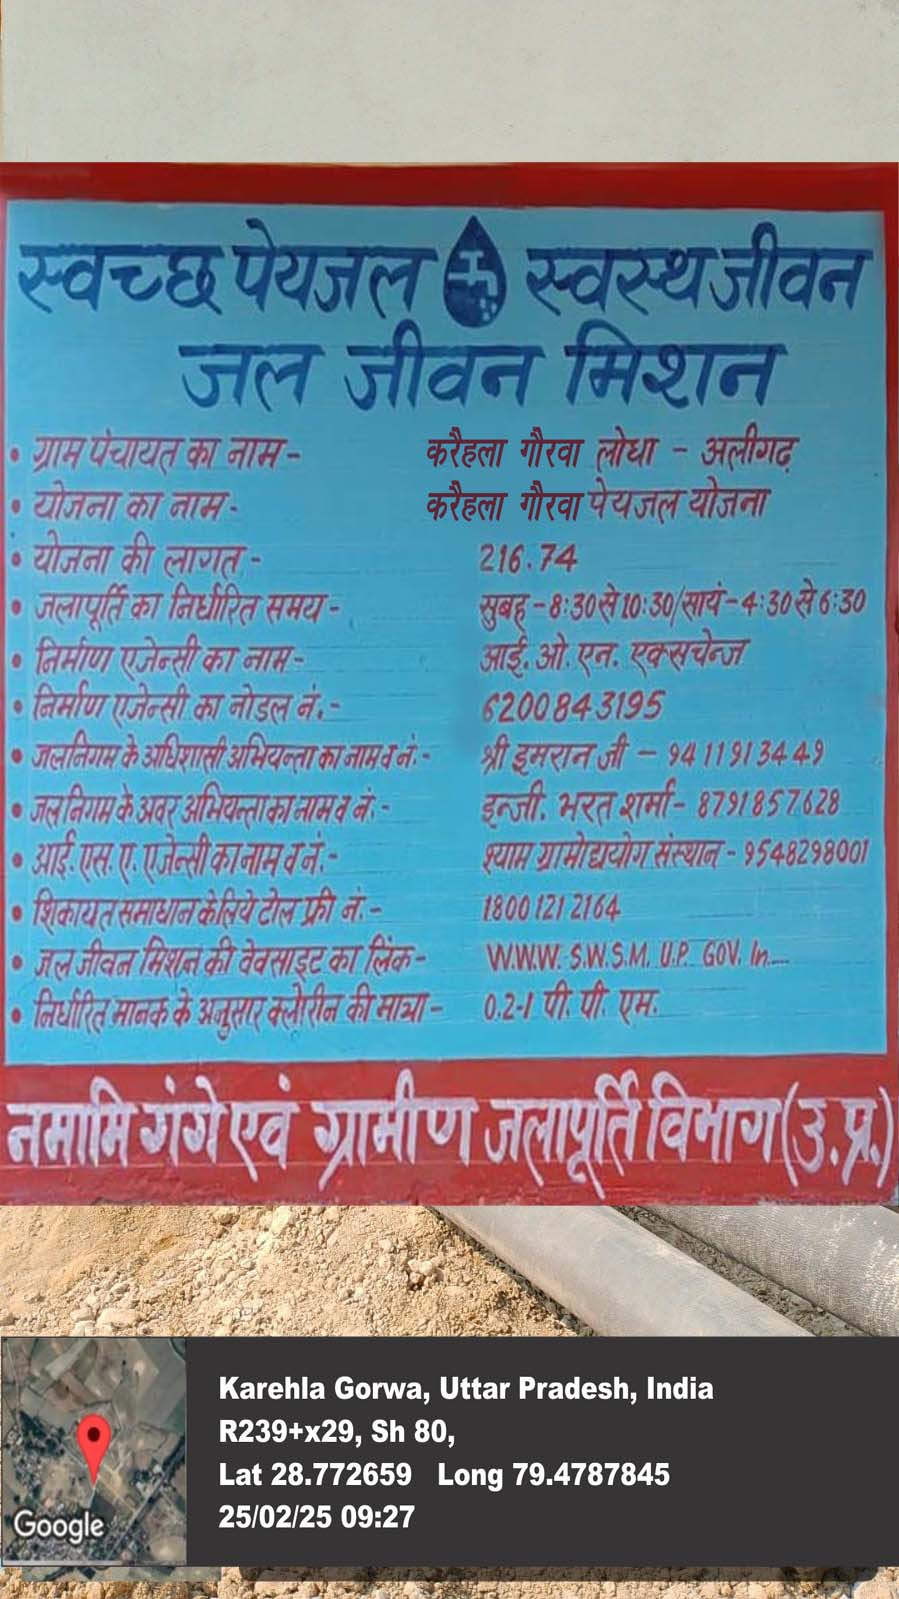 स्वच्छ पेयजल स्वस्थ जीवन
जल जीवन मिशन
• ग्राम पंचायत का नाम - करैहला गौरवा लोधा - अलीगढ़
• योजना का नाम - करैहला गौरवा पेयजल योजना
• योजना की लागत - 216.74
• जलापूर्ति का निर्धारित समय - सुबह - 8:30 से 10:30/सायं - 4:30 से 6:30
• निर्माण एजेन्सी का नाम - आई. ओ. एन. एक्सचेन्ज
• निर्माण एजेन्सी का नोडल नं. - 6200843195
• जलनिगम के अधिशासी अभियन्ता का नाम व नं. - श्री इमरान जी - 9411913449
• जलनिगम के अवर अभियन्ता का नाम व नं. - इन्जी. भरत शर्मा - 8791857628
• आई. एस. ए. एजेन्सी का नाम व नं. - श्याम ग्रामोद्ययोग संस्थान - 9548298001
• शिकायत समाधान के लिये टोल फ्री नं. - 1800 121 2164
• जल जीवन मिशन की वेबसाइट का लिंक - W.W.W. S.W.S.M. U.P. GOV. In....
• निर्धारित मानक के अनुसार क्लोरीन की मात्रा - 0.2-1 पी. पी. एम.
नमामि गंगे एवं ग्रामीण जलापूर्ति विभाग (उ.प्र.)
Karehla Gorwa, Uttar Pradesh, India
R239+x29, Sh 80,
Lat 28.772659 Long 79.4787845
25/02/25 09:27
Google